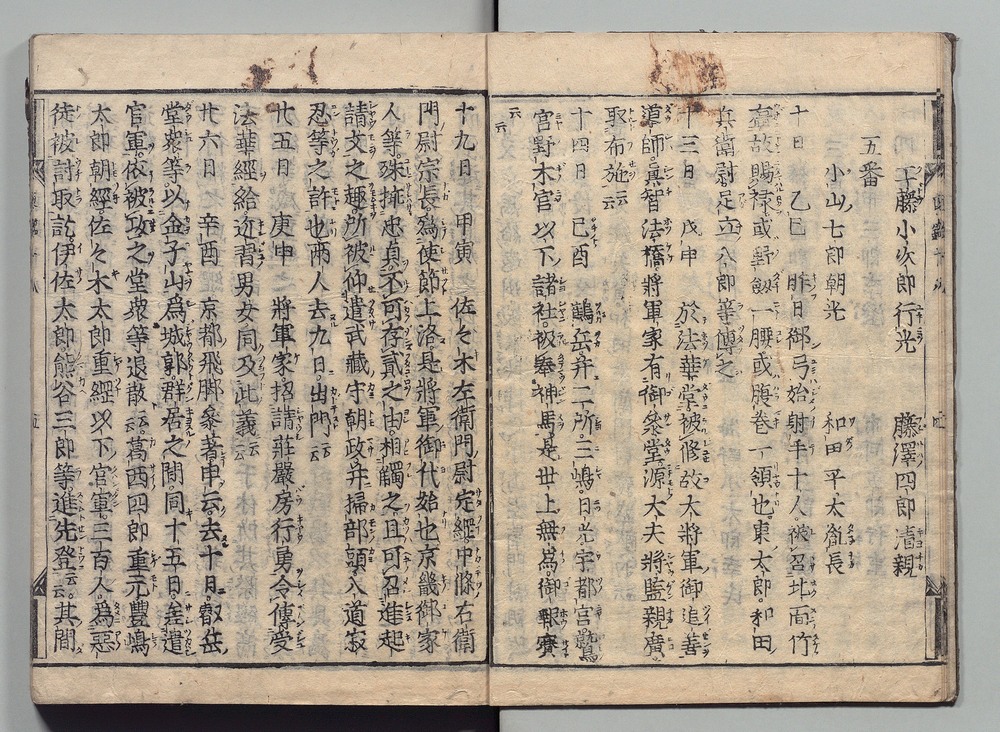 工藤小次郎行光　藤澤四郎清親
五番
小山七郎朝光　和田平太胤長
十日　乙巳　昨日御弓始射手十人被召北面竹
壺故賜禄或野劔一腰或腹巻一領也東太郎和田
兵衛尉足立八郎等傳之
十三日　戊申　於法華堂被修故大將軍御追善
導師眞智法橋將軍家有御參堂源大夫將監親廣
取布施云云
十四日　己酉　鶴岳并二所三嶋日光宇都宮鷲
宮野木宮以下諸社被奉神馬是世上無爲御報賽
云云
十九日　甲寅　佐々木左衛門尉定經中條右衛
門尉宗長爲使節上洛是將軍御代始也京畿御家
人等殊抽忠貞不可存貳之由相觸之且可召進起
請文之趣所被仰遣武藏守朝政并掃部頭入道寂
忍等之許也兩人去九日出門云云
廿五日　庚申　將軍家招請莊嚴房行勇令傳受
法華經給近習男女同及此義云云
廿六日　辛酉　京都飛脚參著申云去十月叡岳
堂衆等以金子山爲城郭群居之間同十五日差遣
官軍依被攻之堂衆等退散云云葛西四郎重元豊嶋
太郎朝經佐々木太郎重經以下官軍三百人爲惡
徒被討取訖伊佐太郎熊谷三郎等進先登云云其間